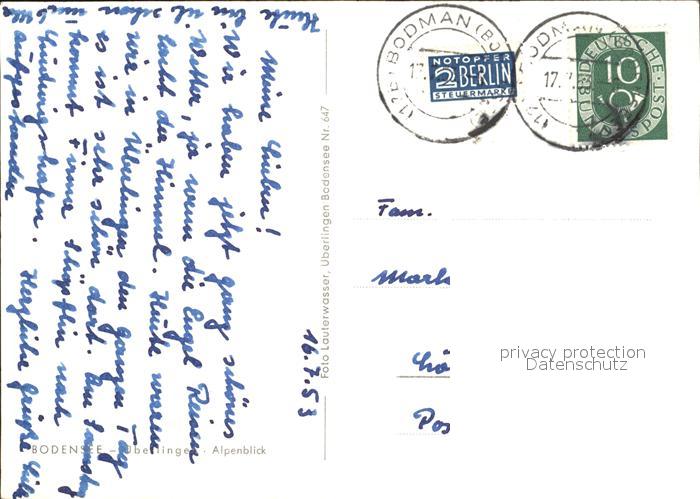 Meine Lieben!
Wir haben jetzt ganz schönes
Wetter, ja wenn die Engel Reisen
lacht der Himmel. Heute waren
wir in Überlingen den ganzen Tag
es ist sehr schön dort. Am Samstag
kommt Firma Schöpflin nach
Ludwigshafen. Herzliche Grüße
aufgestanden
Heute bin
schon
16.7.53
BODENSEE – Überlingen · Alpenblick
Foto Lauterwasser, Überlingen Bodensee Nr. 647
BODMAN
17.
NOTOPFER
2 BERLIN
STEUERMARKE
BODMAN
17.7.
DEUTSCHE
BUNDESPOST
10
Fam.
Mark
Pos
privacy protection
Datenschutz